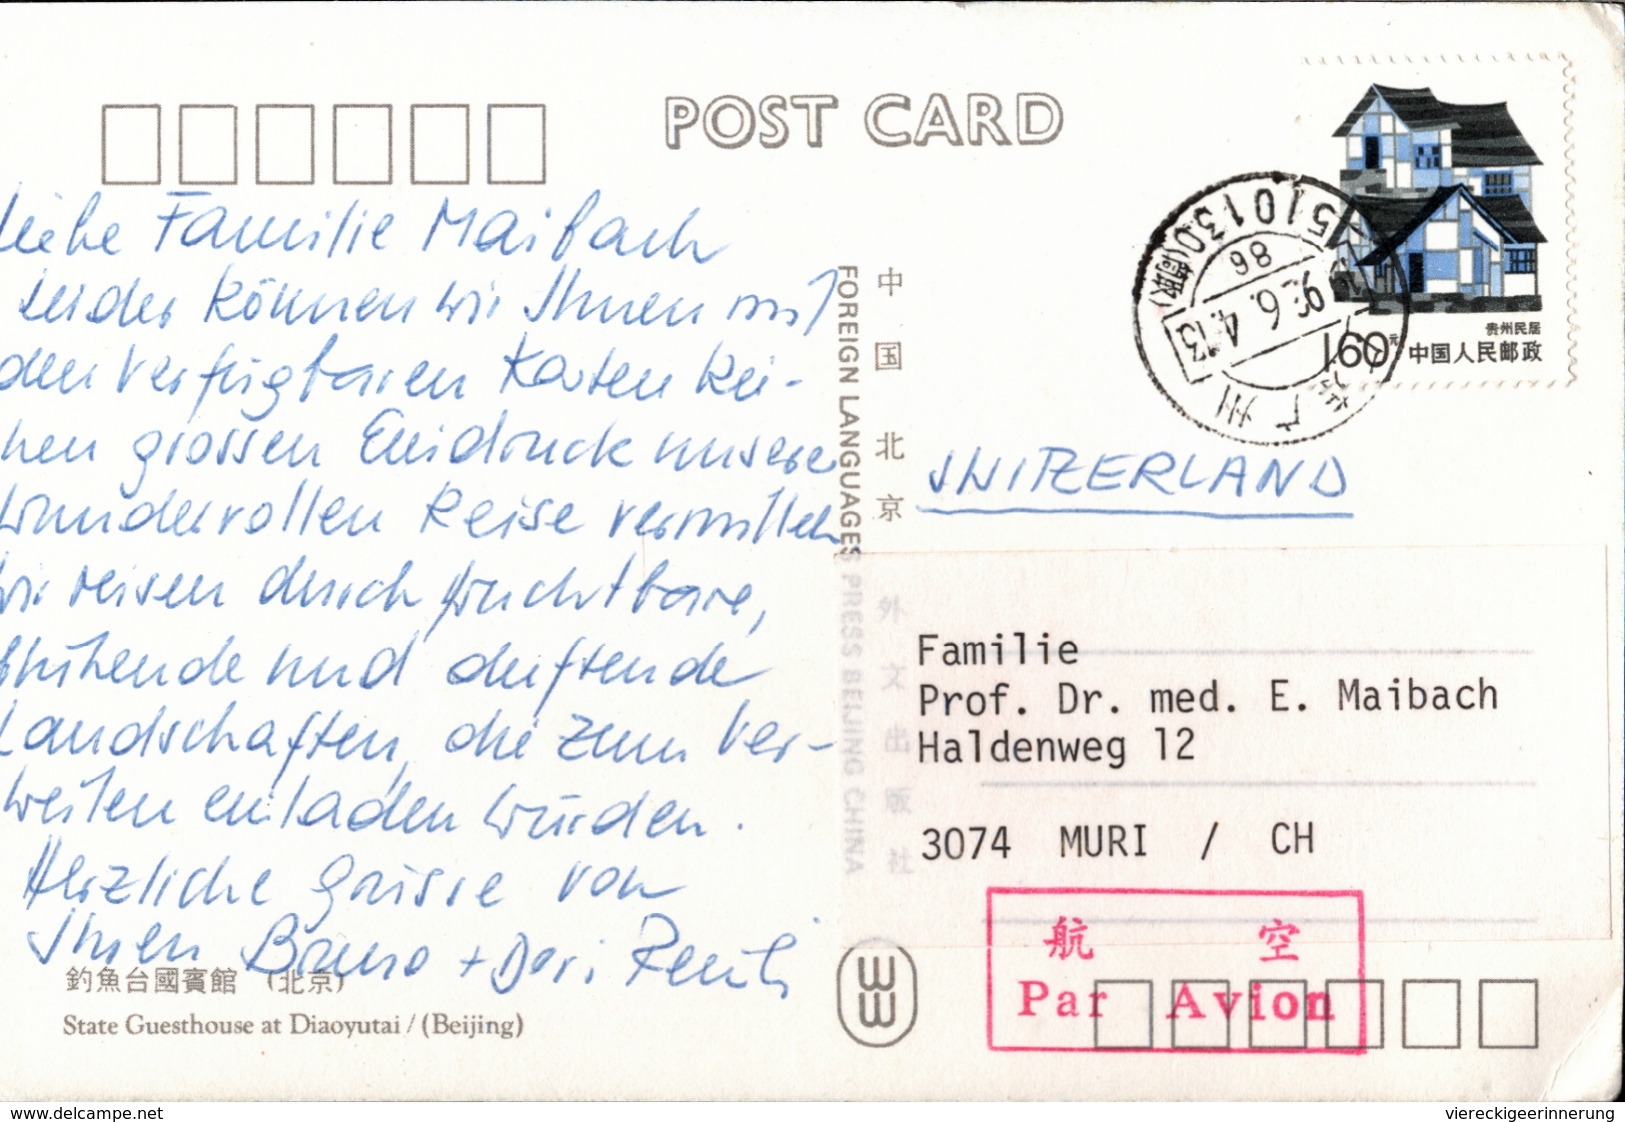 POST CARD
Liebe Familie Maibach
Leider können wir Ihnen mit
den verfügbaren Karten kei-
nen grossen Eindruck unserer
wundervollen Reise vermitteln
Wir reisen durch fruchtbare,
blühende und duftende
Landschaften, die zum Ver-
weilen einladen würden.
Herzliche Grüsse von
Ihnen Bruno + Dori
釣魚台國賓館 (北京)
State Guesthouse at Diaoyutai / (Beijing)
中国北京 外文出版社
FOREIGN LANGUAGES PRESS BEIJING CHINA
贵州民居
1.60元 中国人民邮政
510130
98
广州
SWITZERLAND
Familie
Prof. Dr. med. E. Maibach
Haldenweg 12
3074 MURI / CH
航 空
Par Avion
www.delcampe.net
viereckigeerinnerung